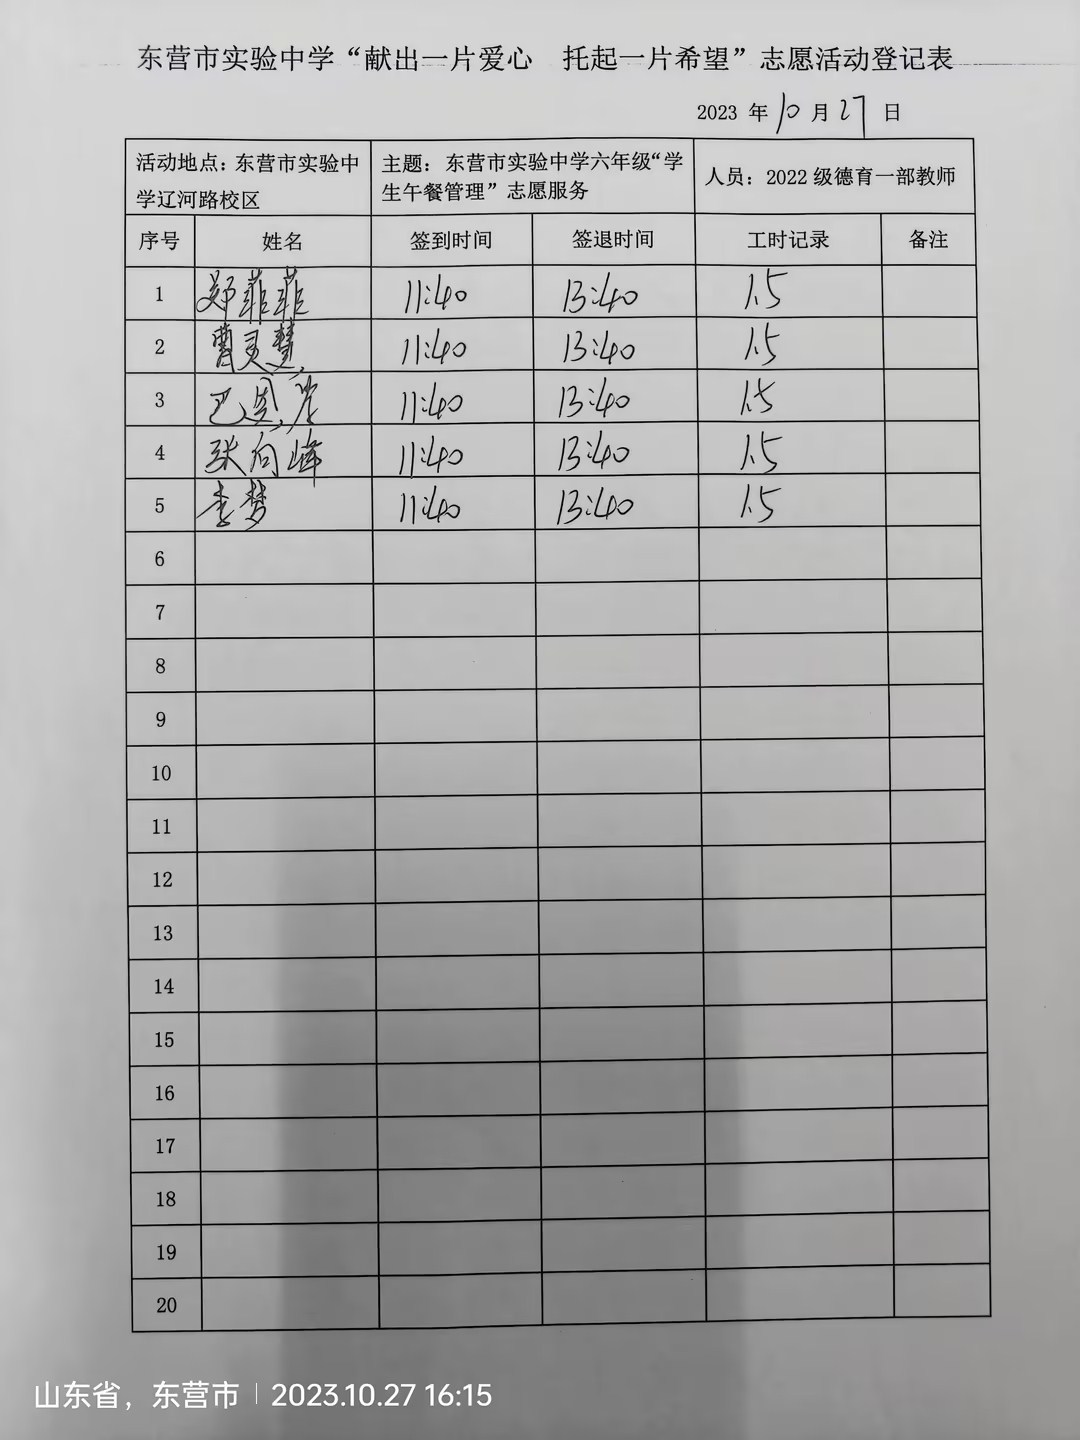 东营市实验中学“献出一片爱心 托起一片希望”志愿活动登记表
2023 年 10 月 27 日
活动地点：东营市实验中学辽河路校区 主题：东营市实验中学六年级“学生午餐管理”志愿服务 人员：2022 级德育一部教师
序号 姓名 签到时间 签退时间 工时记录 备注
1 郑菲菲 11:40 13:40 1.5
2 曹灵慧 11:40 13:40 1.5
3 巴 11:40 13:40 1.5
4 张向峰 11:40 13:40 1.5
5 李梦 11:40 13:40 1.5
6
7
8
9
10
11
12
13
14
15
16
17
18
19
20
山东省，东营市 | 2023.10.27 16:15